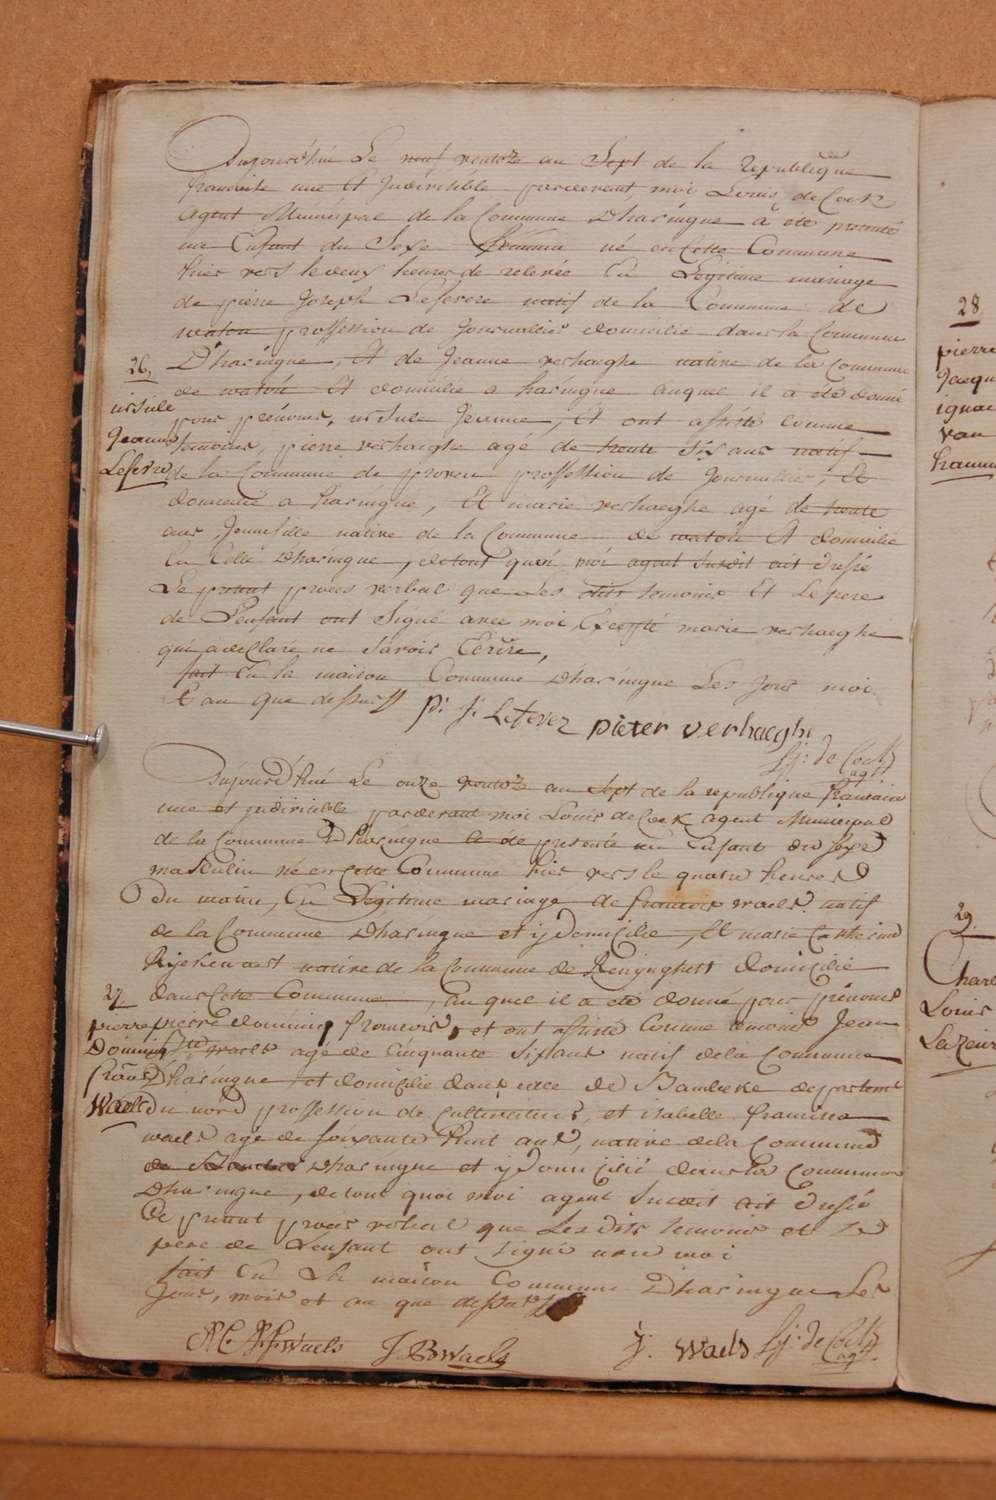 Aujourd'hui Le neuf ventoze an Sept de la republique
francaise une Et Indivisible pardevant moi Louis de Cock
agent Municipal de la Commune Dharingue a été presenté
un Enfant du Sexe feminin né en cette Commune
hier vers le deux heures de relevée En Legitime mariage
de pierre Joseph Lefevere natif de la Commune de
watou proffession de Journallier domicilié dans la Commune
Dharingue, Et de Jeanne verhaeghe native de la Commune
de watou Et domicilie a haringue auquel il a été donné
pour prénoms, ursule Jeanne, Et ont assisté comme
temoins, pierre verhaeghe agé de trente six ans natif
de la Commune de proven proffession de Journallier, Et
domicilié a haringue, Et marie verhaeghe agé de trente
ans Jeune fille native de la Commune de watou Et domicilie
En Cette Dharingue, de tout quoi moi agent Susdit ait dressé
Le present proces verbal que Les dits temoins Et Le pere
de L'enfant ont signé avec moi, Excepté marie verhaeghe
qui a declaré ne savoir Ecrire,
fait En la maison Commune Dharingue Les Jour mois
Et an que dessus
P: J: Lefever pieter verhaeghe
Lj: de Cock
agt
26,
ursule
Jeanne
Lefevre
Aujourd'hui Le onze ventoze an Sept de la republique francaise
une et indivisible pardevant moi Louis de Cock agent Municipal
de la Commune Dharingue a été presenté un Enfant du sexe
masculin né en cette Commune hier vers le quatre heures
du matin, En Legitime mariage de francois waels natif
de la Commune Dharingue et y Domicilié, Et marie Catherine
Ryckewaert native de la Commune de Reninghelst domicilié
dans cette Commune, au quel il a été donné pour prénoms
pierre dominiq francois, et ont assisté Comme temoins Jean
Bte waels agé de Cinquante Six ans natif de la Commune
Dharingue et domicilié dans celle de Bambeke departemt
du nord proffession de Cultivateur, et isabelle francisca
waels agé de soixante huit ans, native de la Commune
Dharingue et y domicilié dans la Commune
Dharingue, de tout quoi moi agent Susdit ait dressé
Le present procès verbal que Les dits temoins et Le
père de L'enfant ont signé avec moi
fait En La maison Commune Dharingue Les
Jour, mois et an que dessus
waels J B waels j: waels Lj: de Cock
agt.
27
pierre
Dominiq
frans
Waels
28
pierre
Jacqu
ignac
van
29
Charl
Louis
Lazeur